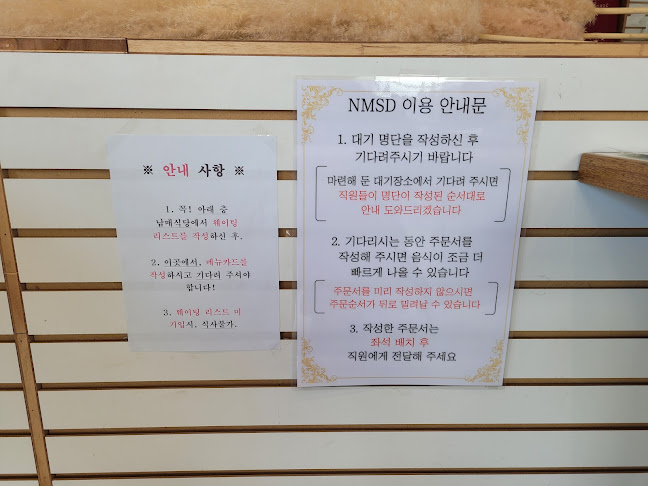 ※ 안내 사항 ※
1. 꼭! 아래 층
남매식당에서 웨이팅
리스트를 작성하신 후.
2. 이곳에서, 메뉴카드를
작성하시고 기다려 주셔야
합니다!
3. 웨이팅 리스트 미
기입시, 식사불가.
NMSD 이용 안내문
1. 대기 명단을 작성하신 후
기다려주시기 바랍니다
마련해 둔 대기장소에서 기다려 주시면
직원들이 명단이 작성된 순서대로
안내 도와드리겠습니다
2. 기다리시는 동안 주문서를
작성해 주시면 음식이 조금 더
빠르게 나올 수 있습니다
주문서를 미리 작성하지 않으시면
주문순서가 뒤로 밀려날 수 있습니다
3. 작성한 주문서는
좌석 배치 후
직원에게 전달해 주세요